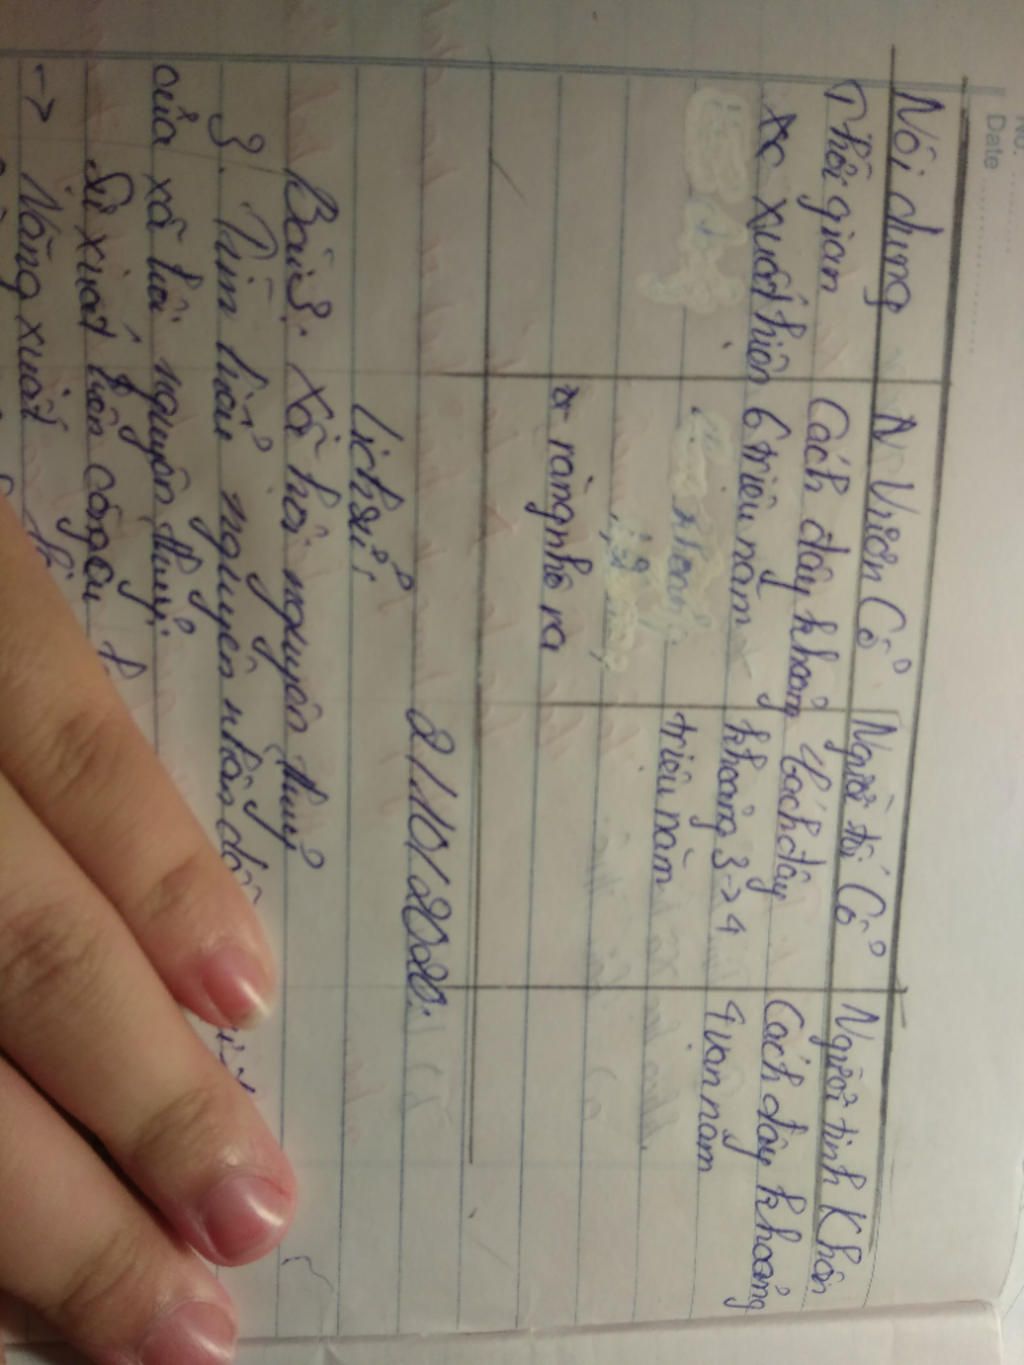 No.
Date
Nội dung N Vượn Cổ Người tối Cổ Người tinh Khôn
Thời gian Cách đây khoảng Cách đây Cách đây khoảng
xuất hiện 6 triệu năm khoảng 3->4 4 vạn năm
triệu năm
ràng nhô ra
2/10/2020.
Lịch sử:
Bài 3: Xã hội nguyên thuỷ
3. Tìm hiểu nguyên nhân
của xã hội nguyên thuỷ:
Sự xuất hiện công cụ
-> Năng xuất